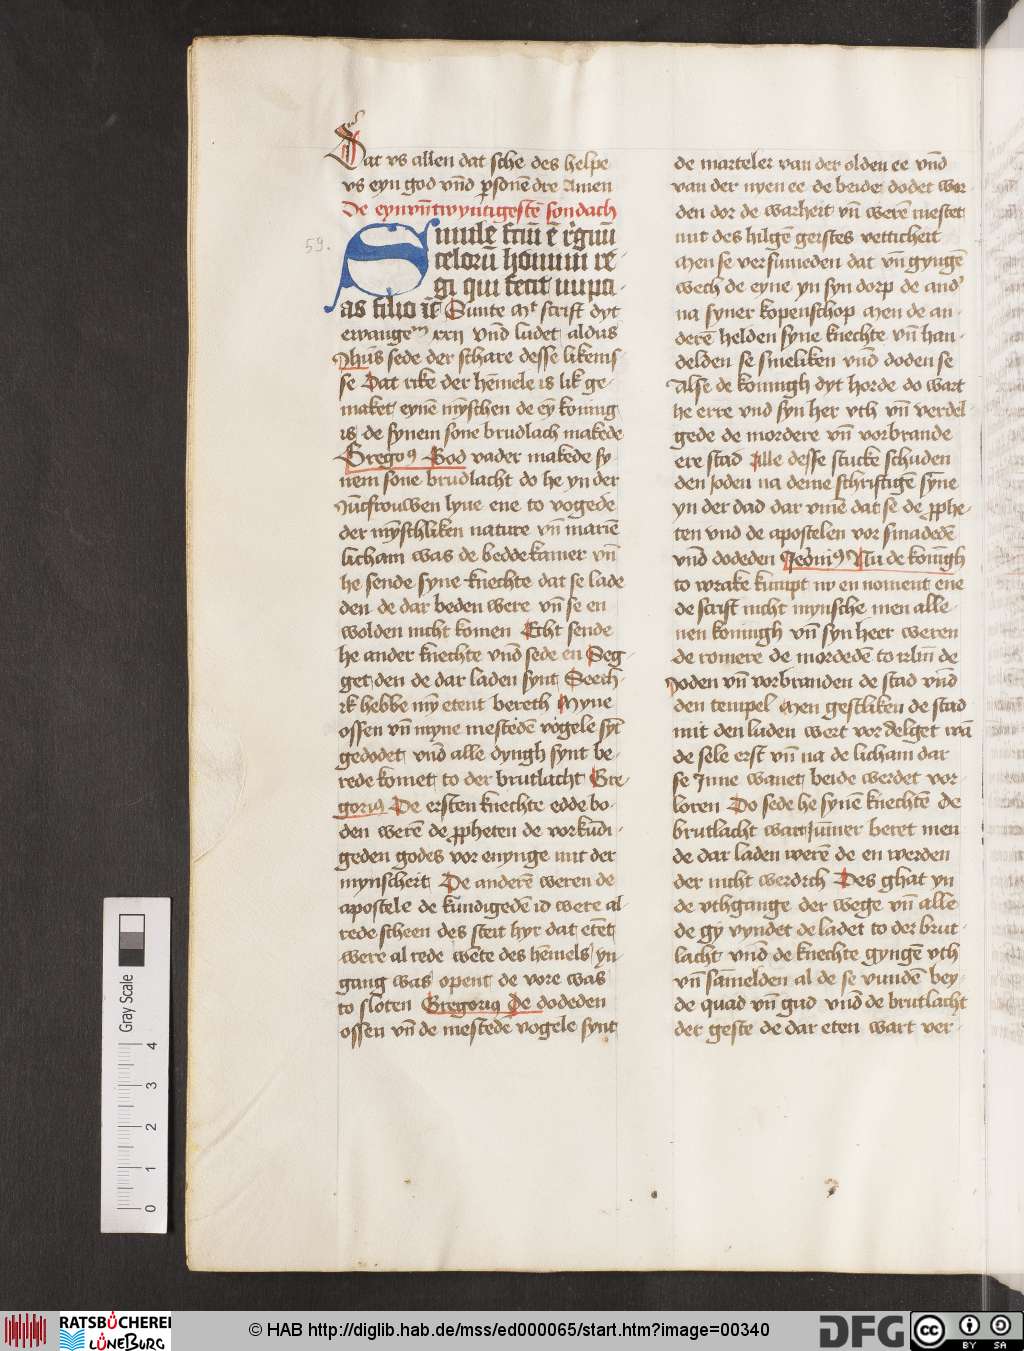 Dat vs allen dat sche des helpe
vs eyn god vn̄d ꝑsonē dre Amen
De eynvn̄twyntigestē sondach
59.
Simile fcm̄ ē rͤgnū
celorū homini re-
gi qui fecit nupci-
as filio sͥ Sunte Mͭ scrift dyt
ewangeᵐ xxij vnd ludet aldus
Jh̄us sede der schare desse likenis-
se Dat rike der hēmele is lik ge-
maket eynē mȳschen de eȳ koning
is de synem sone brudlach makede
Gregoꝰ God vader makede sy-
nem sone brudlacht do he yn der
Jūcfrouwen lyue ene to vogede
der mȳschliken nature vn̄ mariē
licham was de beddekamer vn̄
he sende syne knechte dat se lade
den de dar beden were vn̄ se en
wolden nicht komen Echt sende
he ander knechte vn̄d sede en Seg-
get den de dar laden synt Seeth
ik hebbe mȳ etent bereth Myne
ossen vn̄ myne mestedē vogele syt
gedodet vn̄d alle dyngh synt be-
rede komet to der brutlacht Gre-
goriꝰ De ersten knechte edde bo-
den werē de ꝓpheten de vorkūdi-
geden godes vor enynge mit der
mynscheit De anderē weren de
apostele de kūndigedē id were al-
rede scheen des steit hyr dat etēt
were al rede wēte des hēmels yn-
gang was opent de vore was
to sloten Gregoriꝰ De dodeden
ossen vn̄ de mestede vogele synt
de marteler van der olden ee vn̄d
van der nyen ee de beide dodet wor-
den dor de warheit vn̄ werē mestet
mit des hilgē geistes vetticheit
Men se versumeden dat vn̄ gyngē
wech de eyne yn syn dorp de and'
na syner kopenschop Men de an-
derē helden syne knechte vn̄ han-
delden se smeliken vn̄d doden se
Alse de koningh dyt horde do wart
he erre vnd syn her vth vn̄ verdel-
gede de mordere vn̄ vorbrande
ere stad Alle desse stucke schuden
den Joden na deme schriftigē syne
yn der dad dar vm̄e dat se de ꝓphe-
ten vnd de apostelen vor smadedē
vn̄d dodeden Jeōniꝰ Nu de konigh
to wrake kumpt ny en noment ene
de scrift nicht mynsche men alle-
nen koningh vn̄ syn heer weren
de romere de mordedē to irlm̄ de
Joden vn̄ vorbranden de stad vn̄d
den tempel Men gestliken de stad
mit den luden wert vor delget wā
de sele erst vn̄ na de licham dar
se Jnne wanet beide werdet vor-
loren Do sede he synē knechtē de
brutlacht wart Jūmer beret men
de dar laden werē de en werden
der nicht werdich Des ghat yn
de vthgange der wege vn̄ alle
de gy vyndet de ladet to der brut-
lacht vn̄d de knechte gyngē vth
vn̄ sāmelden al de se vundē bey-
de quad vn̄ gud vn̄d de brutlacht
der geste de dar eten wart ver-
Gray Scale
0 1 2 3 4
RATSBÜCHEREI
LÜNEBURG
© HAB http://diglib.hab.de/mss/ed000065/start.htm?image=00340
DFG
cc BY SA